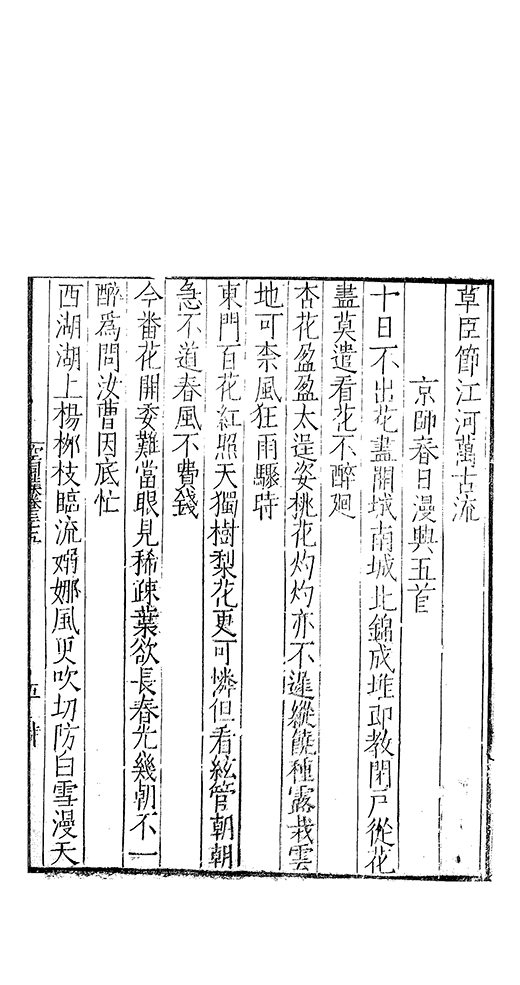 草臣節江河萬古流
京師春日漫興五首
十日不出花盡開城南城北錦成堆即教閉戶從花
盡莫遣看花不醉廻
杏花盈盈太逞姿桃花灼灼亦不遲縱饒種露栽雲
地可柰風狂雨驟時
東門百花紅照天獨樹梨花更可憐但看絃管朝朝
急不道春風不費錢
今番花開委難當眼見稀疎葉欲長春光幾朝不一
醉爲問汝曹因底忙
西湖湖上楊栁枝臨流嫋娜風更吹切防白雪漫天